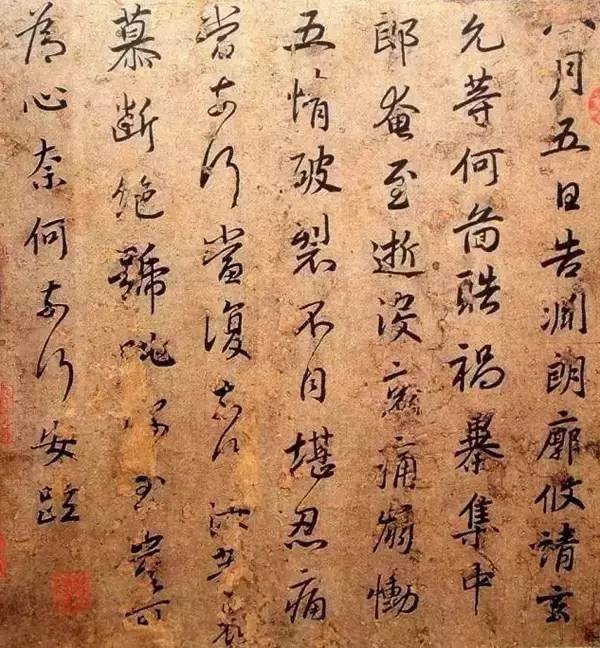 八月五日告淵朗廓攸靖玄
允等何啚酷禍暴集中
郎奄至逝没哀痛崩慟
五情破裂不自堪忍痛
當奈何當復奈何汝等哀
慕斷絶號咷深至豈可
為心奈何奈何安疏